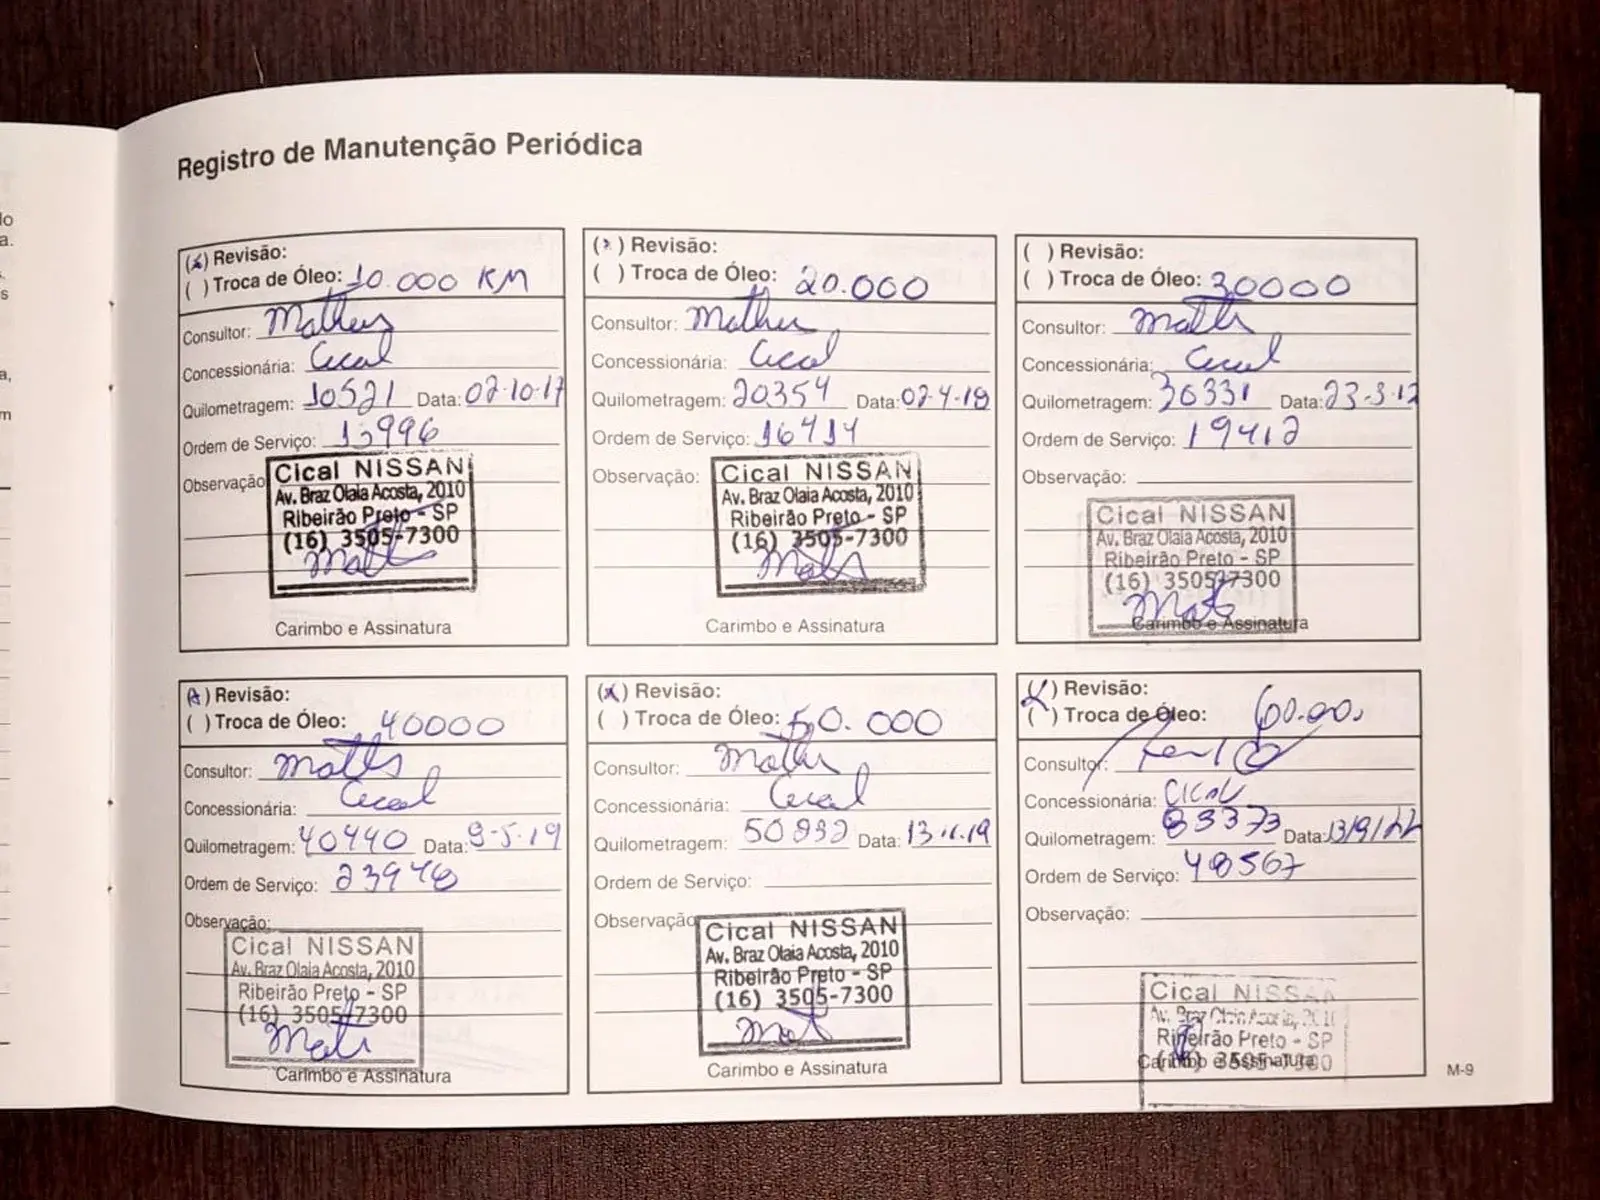 lo
a.
s
a,
m
Registro de Manutenção Periódica
(x) Revisão:
( ) Troca de Óleo: 10.000 KM
Consultor: Matheus
Concessionária: Cical
Quilometragem: 10521 Data: 02-10-17
Ordem de Serviço: 13996
Observação
Cical NISSAN
Av. Braz Olaia Acosta, 2010
Ribeirão Preto - SP
(16) 3505-7300
Carimbo e Assinatura
(x) Revisão:
( ) Troca de Óleo: 20.000
Consultor:
Concessionária: Cical
Quilometragem: 20354 Data: 02-4-18
Ordem de Serviço: 16414
Observação:
Cical NISSAN
Av. Braz Olaia Acosta, 2010
Ribeirão Preto - SP
(16) 3505-7300
Carimbo e Assinatura
( ) Revisão:
( ) Troca de Óleo: 30000
Consultor:
Concessionária: Cical
Quilometragem: 30331 Data:
Ordem de Serviço: 19412
Observação:
Cical NISSAN
Av. Braz Olaia Acosta, 2010
Ribeirão Preto - SP
(16) 3505-7300
Carimbo e Assinatura
(x) Revisão:
( ) Troca de Óleo: 40000
Consultor:
Concessionária: Cical
Quilometragem: 40440 Data: 9-5-19
Ordem de Serviço:
Observação:
Cical NISSAN
Av. Braz Olaia Acosta, 2010
Ribeirão Preto - SP
(16) 3505-7300
Carimbo e Assinatura
(x) Revisão:
( ) Troca de Óleo: 50.000
Consultor:
Concessionária: Cical
Quilometragem: Data: 13-11-19
Ordem de Serviço:
Observação
Cical NISSAN
Av. Braz Olaia Acosta, 2010
Ribeirão Preto - SP
(16) 3505-7300
Carimbo e Assinatura
(x) Revisão:
( ) Troca de Óleo: 60.000
Consultor:
Concessionária: CICAL
Quilometragem: 83373 Data: 13/9/22
Ordem de Serviço: 48567
Observação:
Cical NISSAN
Av. Braz Olaia Acosta, 2010
Ribeirão Preto - SP
(16) 3505-7300
Carimbo e Assinatura
M-9